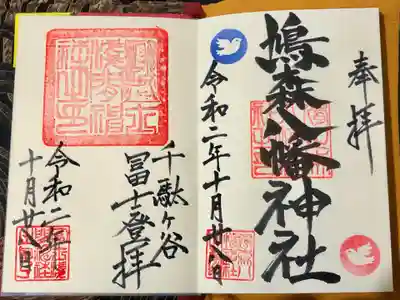 奉拝
鳩森八幡神社
令和二年十月廿八日
千駄ヶ谷
冨士登拝
令和二年
十月廿八日